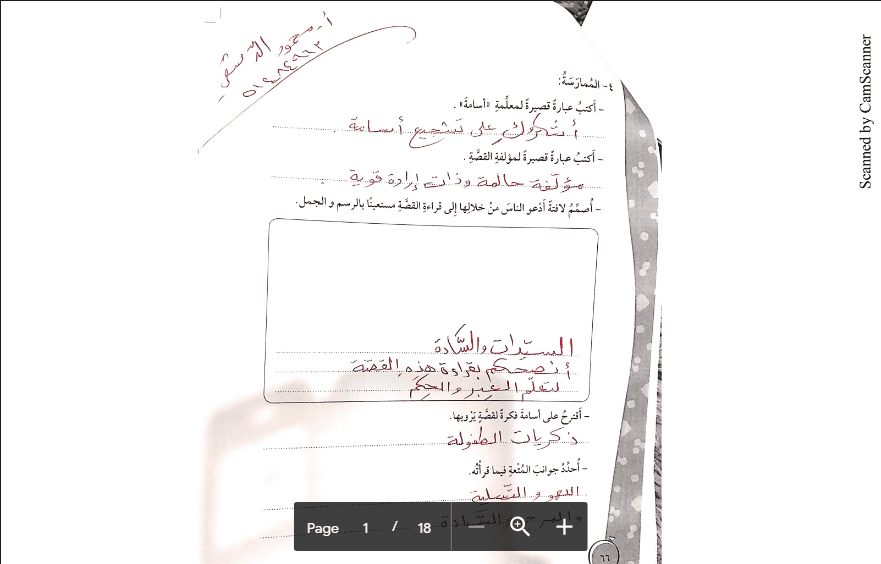 أ. محمود
٤- المُمارَسَةُ:
– أَكتبُ عبارةً قصيرةً لمعلِّمةِ «أسامةَ» .
أشكركِ على تشجيع أسامة
– أَكتبُ عبارةً قصيرةً لمؤلفةِ القصَّةِ .
مؤلّفة حالمة وذات إرادة قوية
– أُصمِّمُ لافتةً أَدْعو الناسَ منْ خلالِها إلى قراءةِ القصَّةِ مستعينًا بالرسم و الجمل.
السيّدات والسَّادة
أنصحكم بقراءة هذه القصّة
لتعلّم العِبَر والحِكَم
– أَقترحُ على أسامةَ فكرةً لقصَّةٍ يَرْويها.
ذكريات الطفولة
– أُحدِّدُ جوانبَ المُتْعةِ فيما قرأتُه.
اللهو و التّسلية
٦٦
Scanned by CamScanner
Page 1 / 18